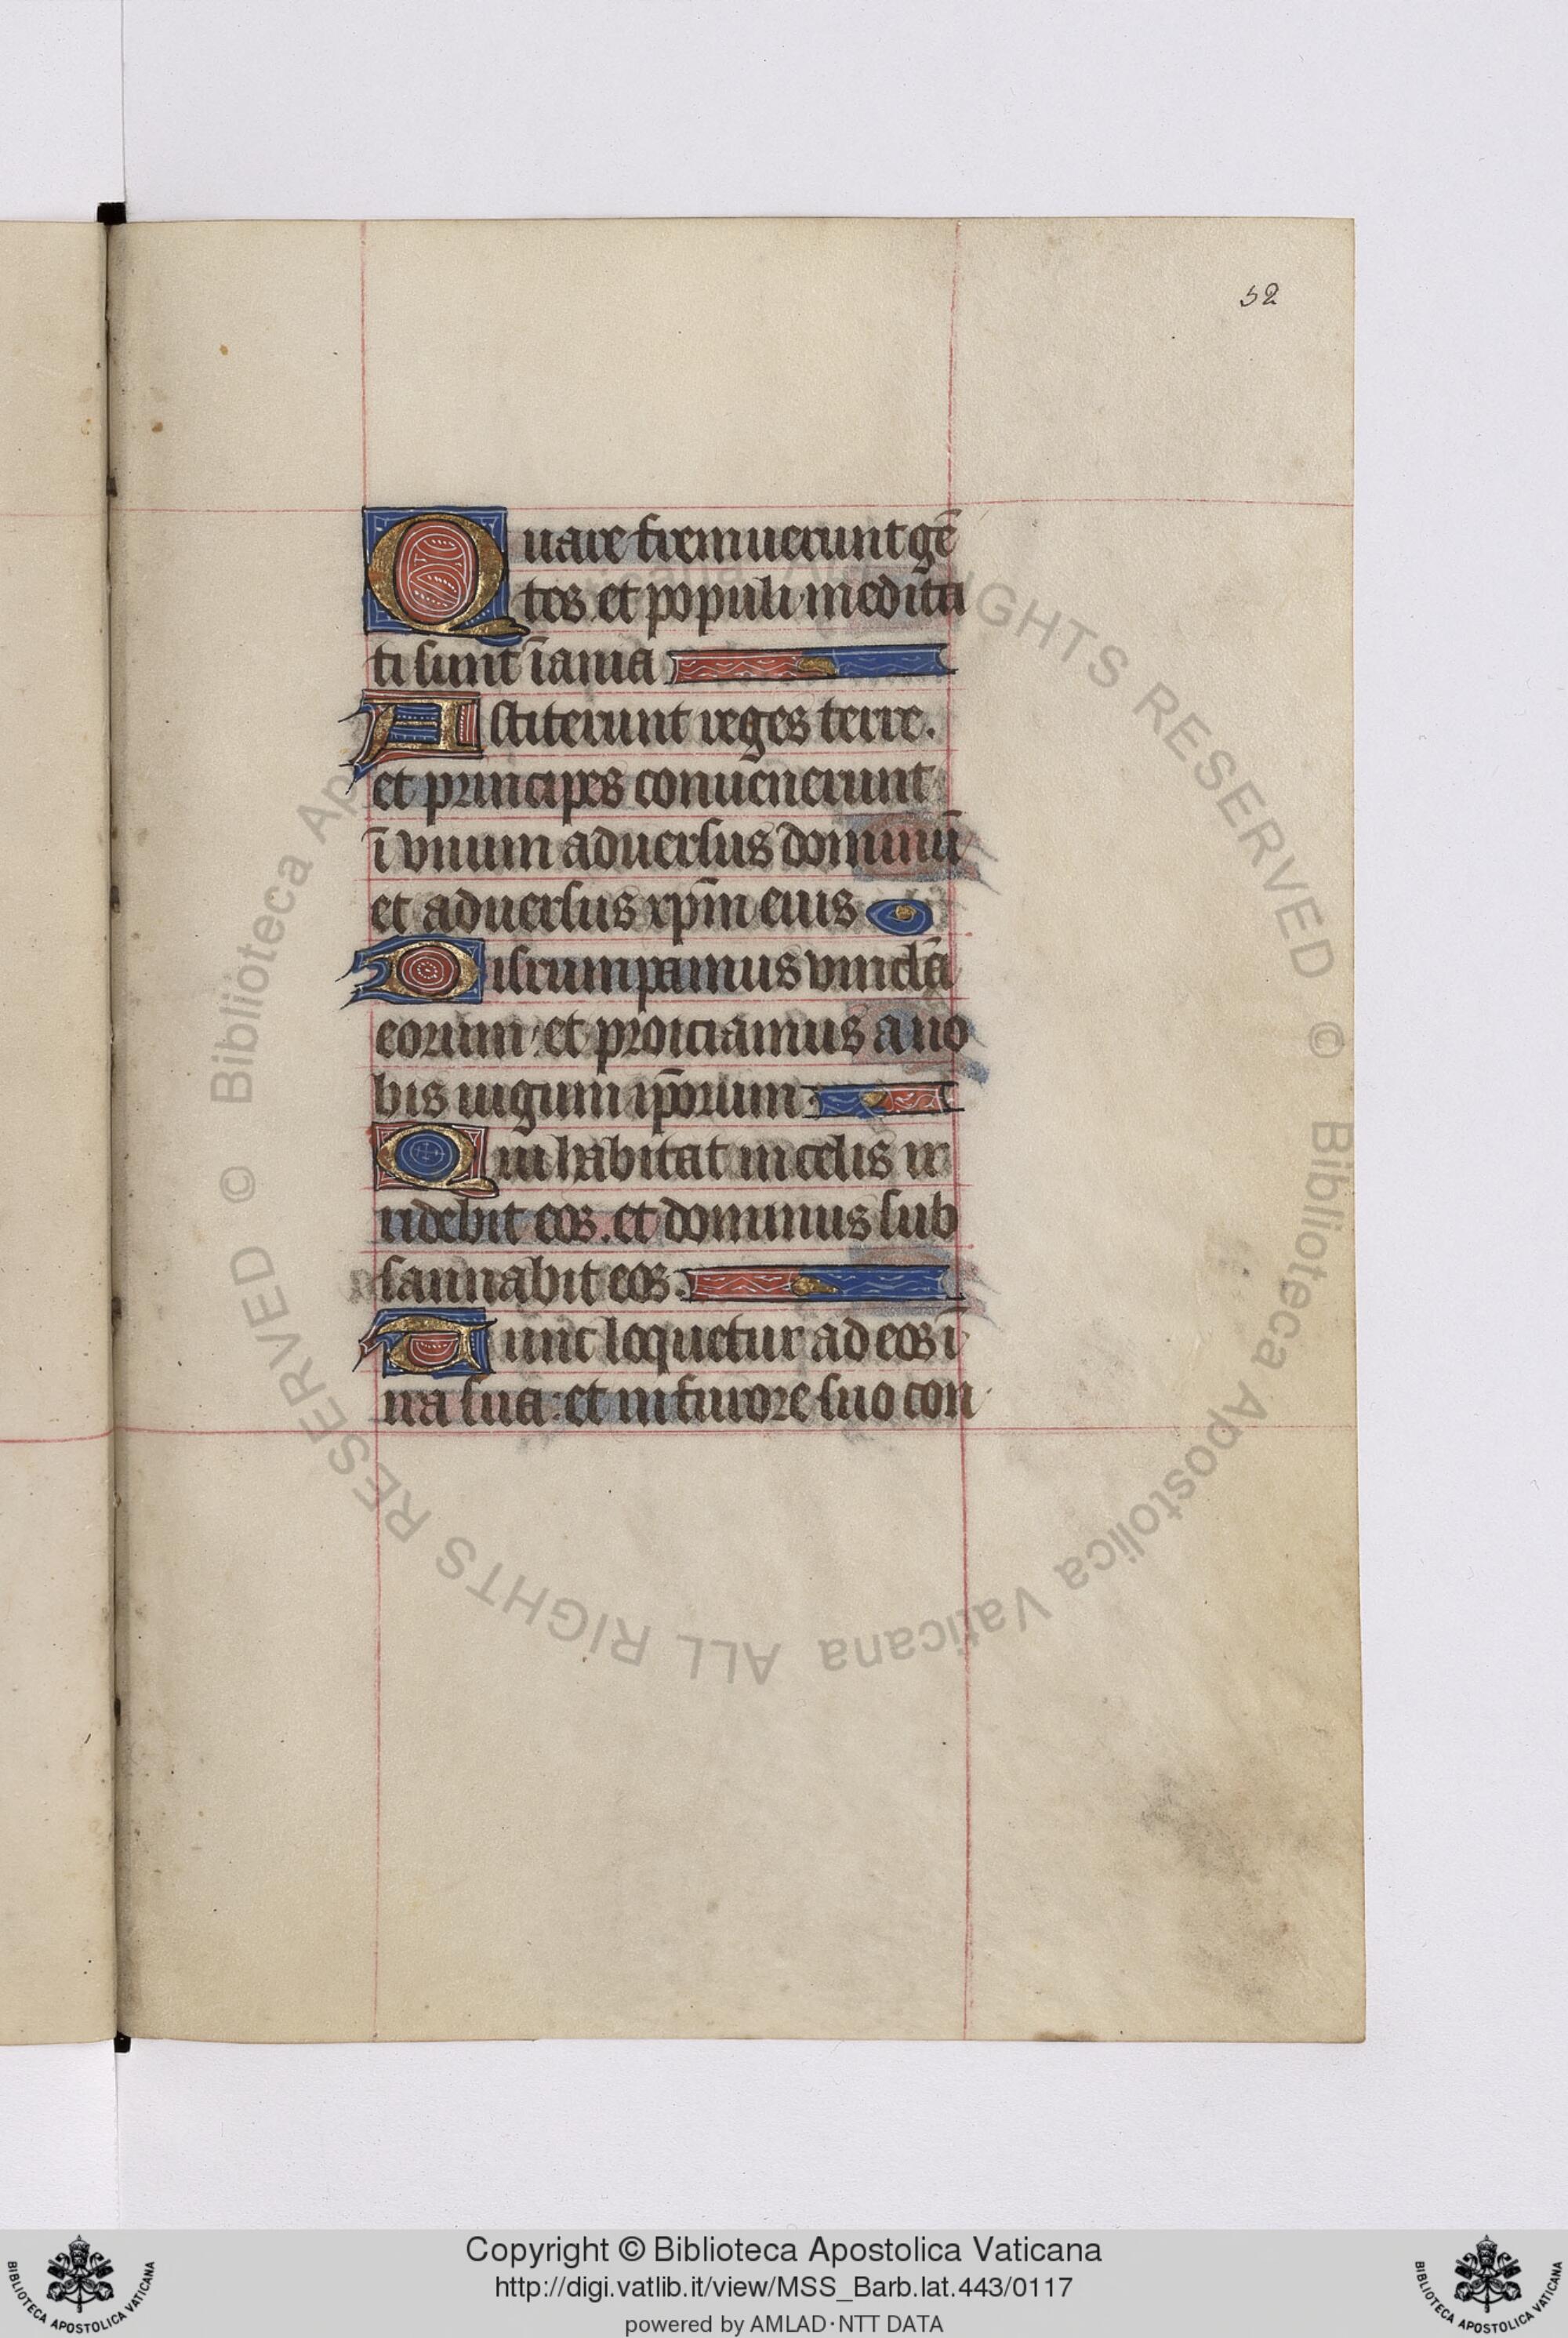 52
Quare fremuerunt gē
tes et populi medita
ti sunt īania
Astiterunt reges terre.
et principes conuenerunt
ī vnum aduersus dominū
et aduersus xp̄m eius
Disrumpamus vincla
eorum: et proiciamus a no
bis iugum ip̄orum
Qui habitat in celis ir
ridebit eos. et dominus sub
sannabit eos.
Tunc loquetur ad eos ī
ira sua: et in furore suo con
© Biblioteca Apostolica Vaticana ALL RIGHTS RESERVED
© Biblioteca Apostolica Vaticana ALL RIGHTS RESERVED
Copyright © Biblioteca Apostolica Vaticana
http://digi.vatlib.it/view/MSS_Barb.lat.443/0117
powered by AMLAD·NTT DATA
BIBLIOTECA APOSTOLICA VATICANA
BIBLIOTECA APOSTOLICA VATICANA